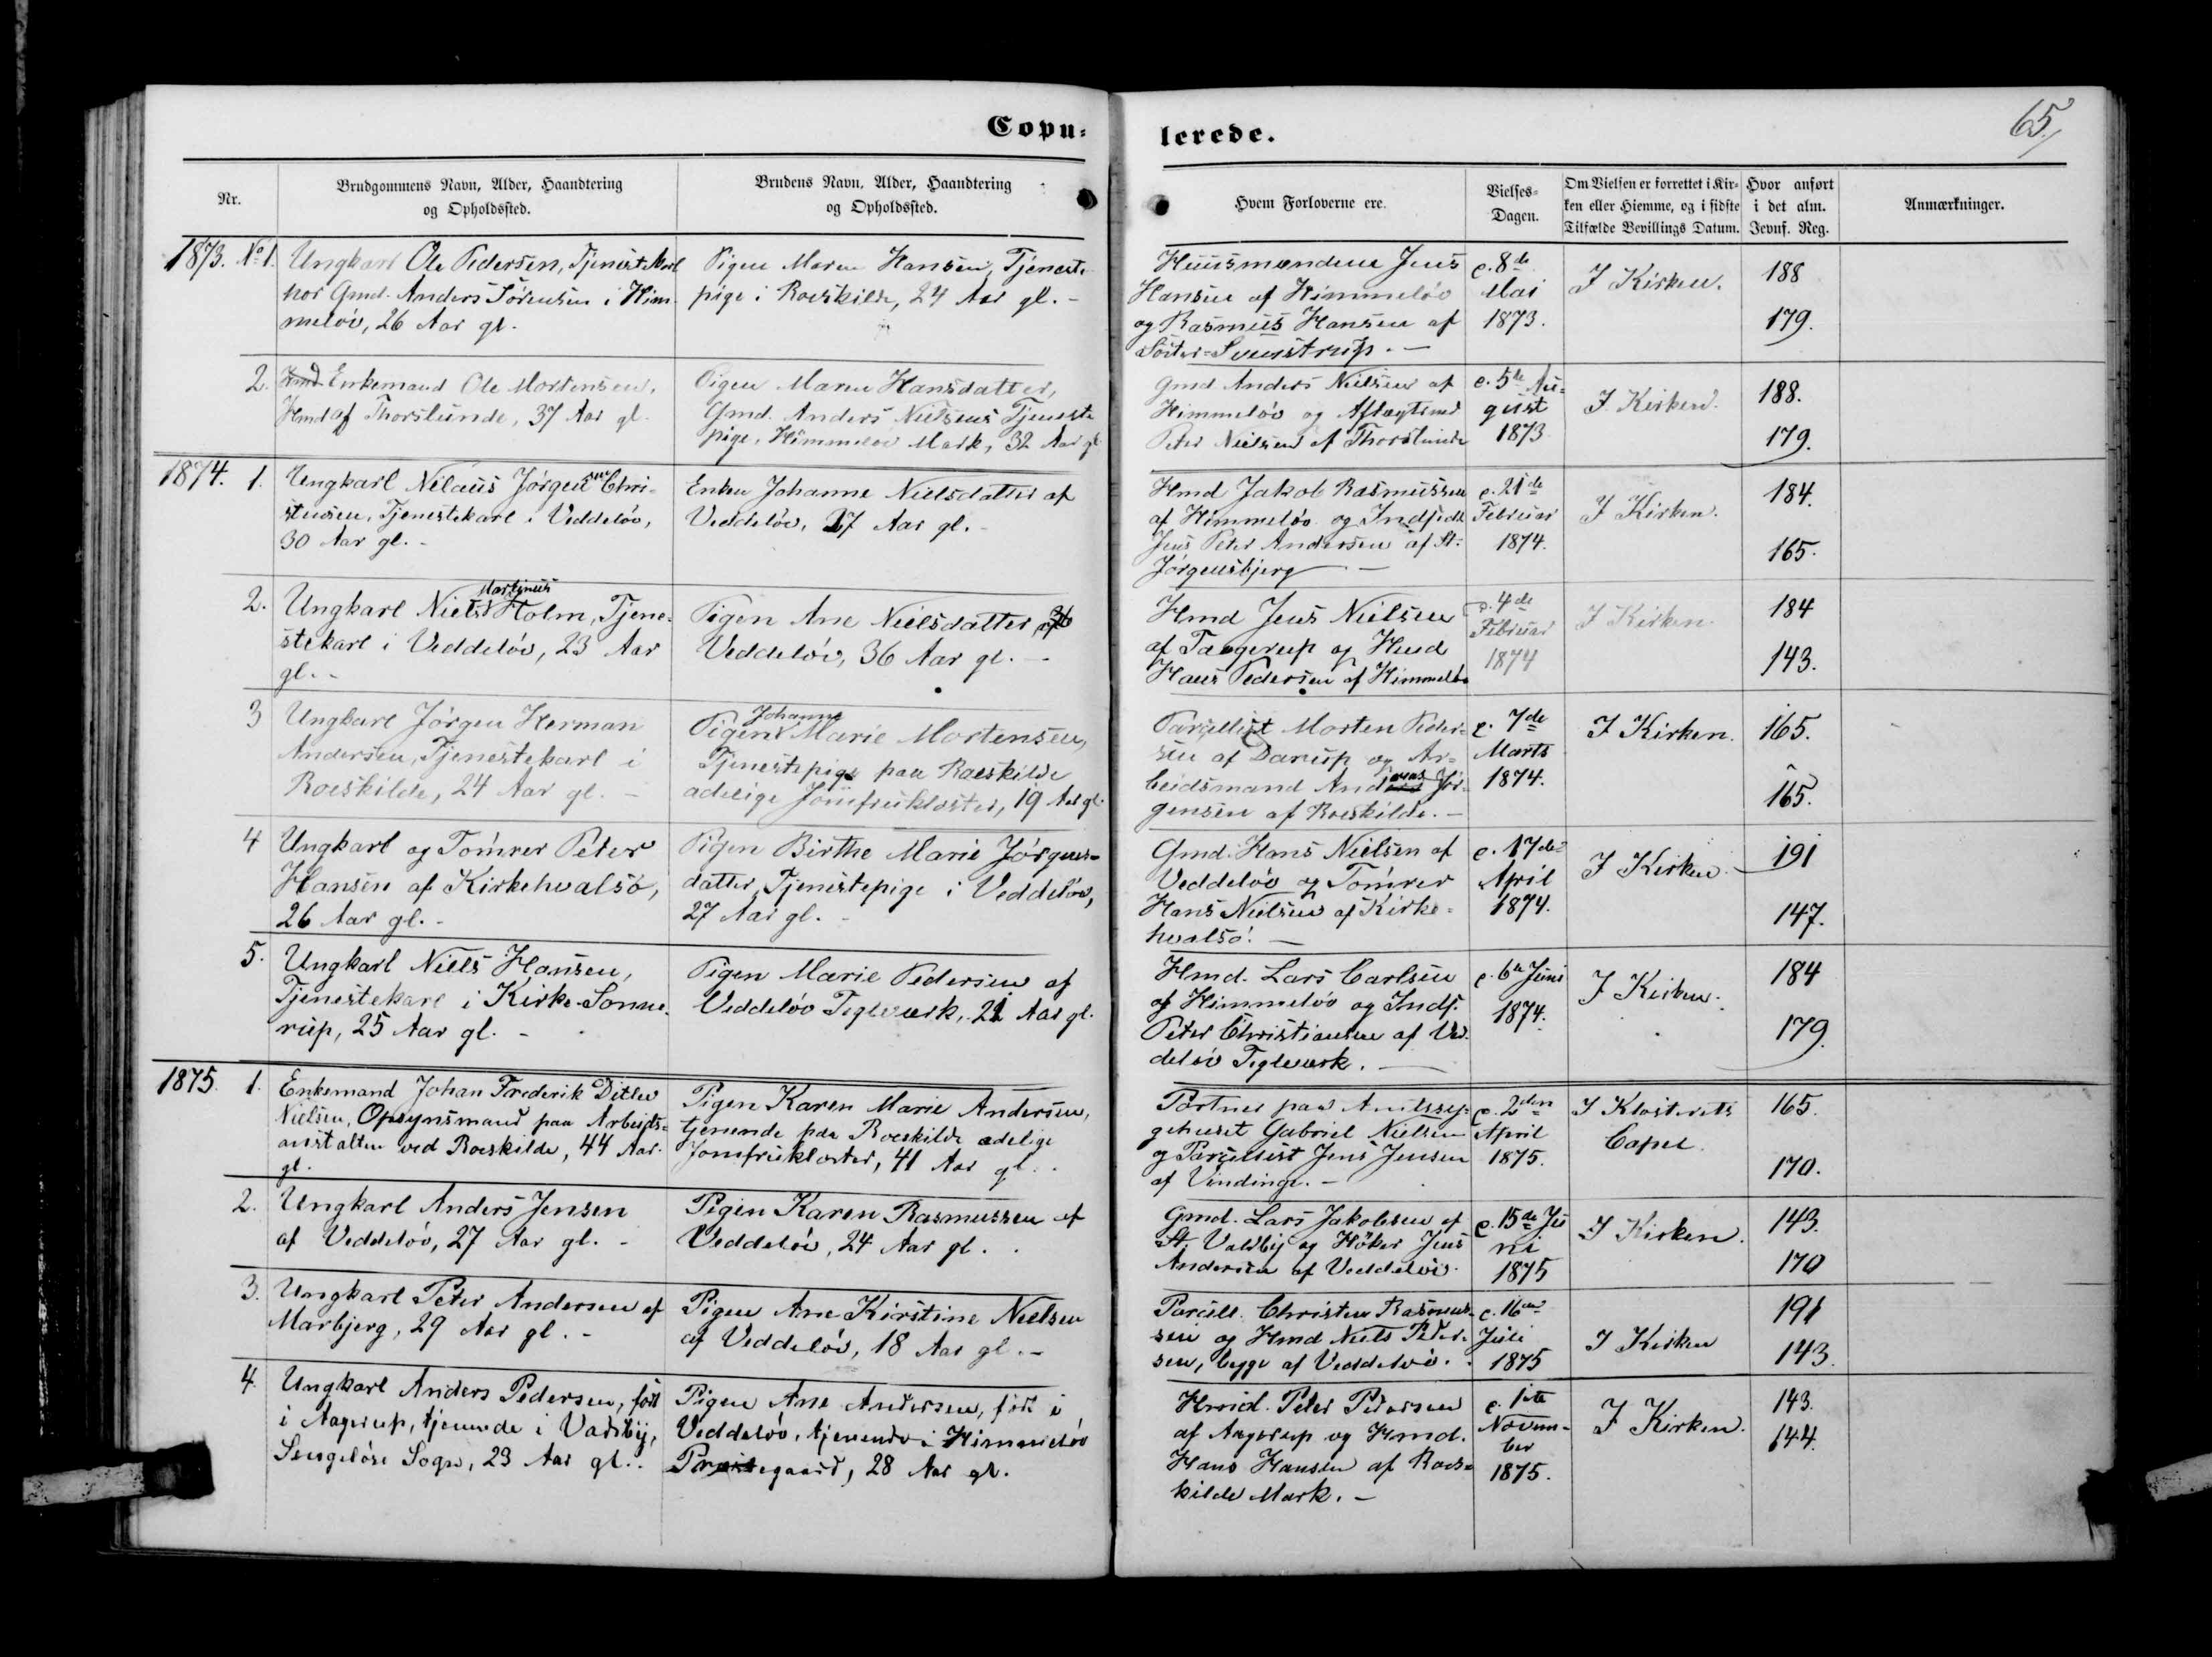 Copu-
lerede.
65,
Nr.
Brudgommens Navn, Alder, Haandtering
og Opholdssted.
Brudens Navn, Alder, Haandtering
og Opholdssted.
Hvem Forloverne ere.
Vielses-
Dagen.
Om Vielsen er forrettet i Kir-
ken eller Hiemme, og i sidste
Tilfælde Bevillings Datum.
Hvor anført
i det alm.
Jevnf. Reg.
Anmærkninger.
1873. No 1.
Ungkarl Ole Pedersen, Tjenestekarl
hos Gmd. Anders Sörensen i Him-
melöv, 26 Aar gl.
Pigen Maren Hansen, Tjeneste-
pige i Roeskilde, 24 Aar gl. -
Huusmændene Jens
Hansen af Himmelöv
og Rasmus Hansen af
Söster-Svenstrup. -
e. 8de
Mai
1873.
I Kirken.
188
179.
2.
Hmd Enkemand Ole Mortensen,
Hmd af Thorslunde, 37 Aar gl
Pigen Maren Hansdatter,
Gmd. Anders Nielsens Tjeneste
pige, Himmelöv Mark, 32 Aar gl
Gmd Anders Nielsen af
Himmelöv og Aftægtsmd
Peter Nielsen af Thorslunde
e. 5te Au-
gust
1873
I Kirken.
188.
179.
1874. 1.
Ungkarl Nelaus Jörgensen Chri-
stensen, Tjenestekarl i Veddelöv,
30 Aar gl. -
Enken Johanne Nielsdatter af
Veddelöv, 27 Aar gl. -
Hmd Jakob Rasmussen
af Himmelöv og Indsidd
Jens Peter Andersen af St.
Jörgensbjerg -
e. 21de
Februar
1874.
I Kirken.
184.
165.
2.
Ungkarl Niels Martinus Holm, Tjene-
stekarl i Veddelöv, 23 Aar
gl. -
Pigen Ane Nielsdatter af
Veddelöv, 36 Aar gl. -
Hmd Jens Nielsen
af Taagerup og Hmd
Hans Pedersen af Himmelöv
d. 4de
Februar
1874
I Kirken
184
143.
3
Ungkarl Jörgen Herman
Andersen, Tjenestekarl i
Roeskilde, 24 Aar gl. -
Pigen Johanne Marie Mortensen,
Tjenestepige paa Roeskilde
adelige Jomfrukloster, 19 Aar gl.
Parcellist Morten Peder-
sen af Darup og Ar-
beidsmand Andreas Jör-
gensen af Roeskilde. -
e. 7de
Marts
1874.
I Kirken.
165.
165.
4
Ungkarl og Tömrer Peter
Hansen af Kirkehvalsö,
26 Aar gl. -
Pigen Birthe Marie Jörgens-
datter, Tjenestepige i Veddelöv,
27 Aar gl. -
Gmd. Hans Nielsen af
Veddelöv og Tömrer
Hans Nielsen af Kirke-
hvalsö. -
e. 17de
April
1874.
I Kirken
191
147.
5.
Ungkarl Niels Hansen,
Tjenestekarl i Kirke-Sonne-
rup, 25 Aar gl. -
Pigen Marie Pedersen af
Veddelöv Teglværk, 21 Aar gl.
Hmd. Lars Carlsen
af Himmelöv og Inds.
Peter Christiansen af Ved-
delöv Teglværk. -
e. 6te Juni
1874.
I Kirken.
184
179.
1875. 1.
Enkemand Johan Frederik Ditlev
Nielsen, Opsynsmand paa Arbeids-
anstalten ved Roeskilde, 44 Aar
gl.
Pigen Karen Marie Andersen,
tjenende paa Roeskilde adelige
Jomfrukloster, 41 Aar gl.
Portner paa Amtssy-
gehuset Gabriel Nielsen
og Parcellist Jens Jensen
af Vindinge. -
e. 2den
April
1875.
I Klosterets
Capel.
165.
170.
2.
Ungkarl Anders Jensen
af Veddelöv, 27 Aar gl. -
Pigen Karen Rasmussen af
Veddelöv, 24 Aar gl.
Gmd. Lars Jakobsen af
St. Valdby og Höker Jens
Andersen af Veddelöv.
e. 15de Ju
ni
1875
I Kirken.
143.
170
3.
Ungkarl Peter Andersen af
Marbjerg, 29 Aar gl. -
Pigen Ane Kirstine Nielsen
af Veddelöv, 18 Aar gl. -
Parcell. Christen Rasmus-
sen og Hmd Niels Peder-
sen, begge af Veddelöv.
e. 16de
Juli
1875
I Kirken
191
143.
4.
Ungkarl Anders Pedersen, föd
i Aagerup, tjenende i Vadsby,
Sengelöse Sogn, 23 Aar gl.
Pigen Ane Andersen, föd i
Veddelöv, tjenende i Himmelöv
Præstegaard, 28 Aar gl.
Hmd. Peter Pedersen
af Aagerup og Hmd.
Hans Hansen af Roes-
kilde Mark. -
e. 1ste
Novem-
ber
1875.
I Kirken.
143.
144.